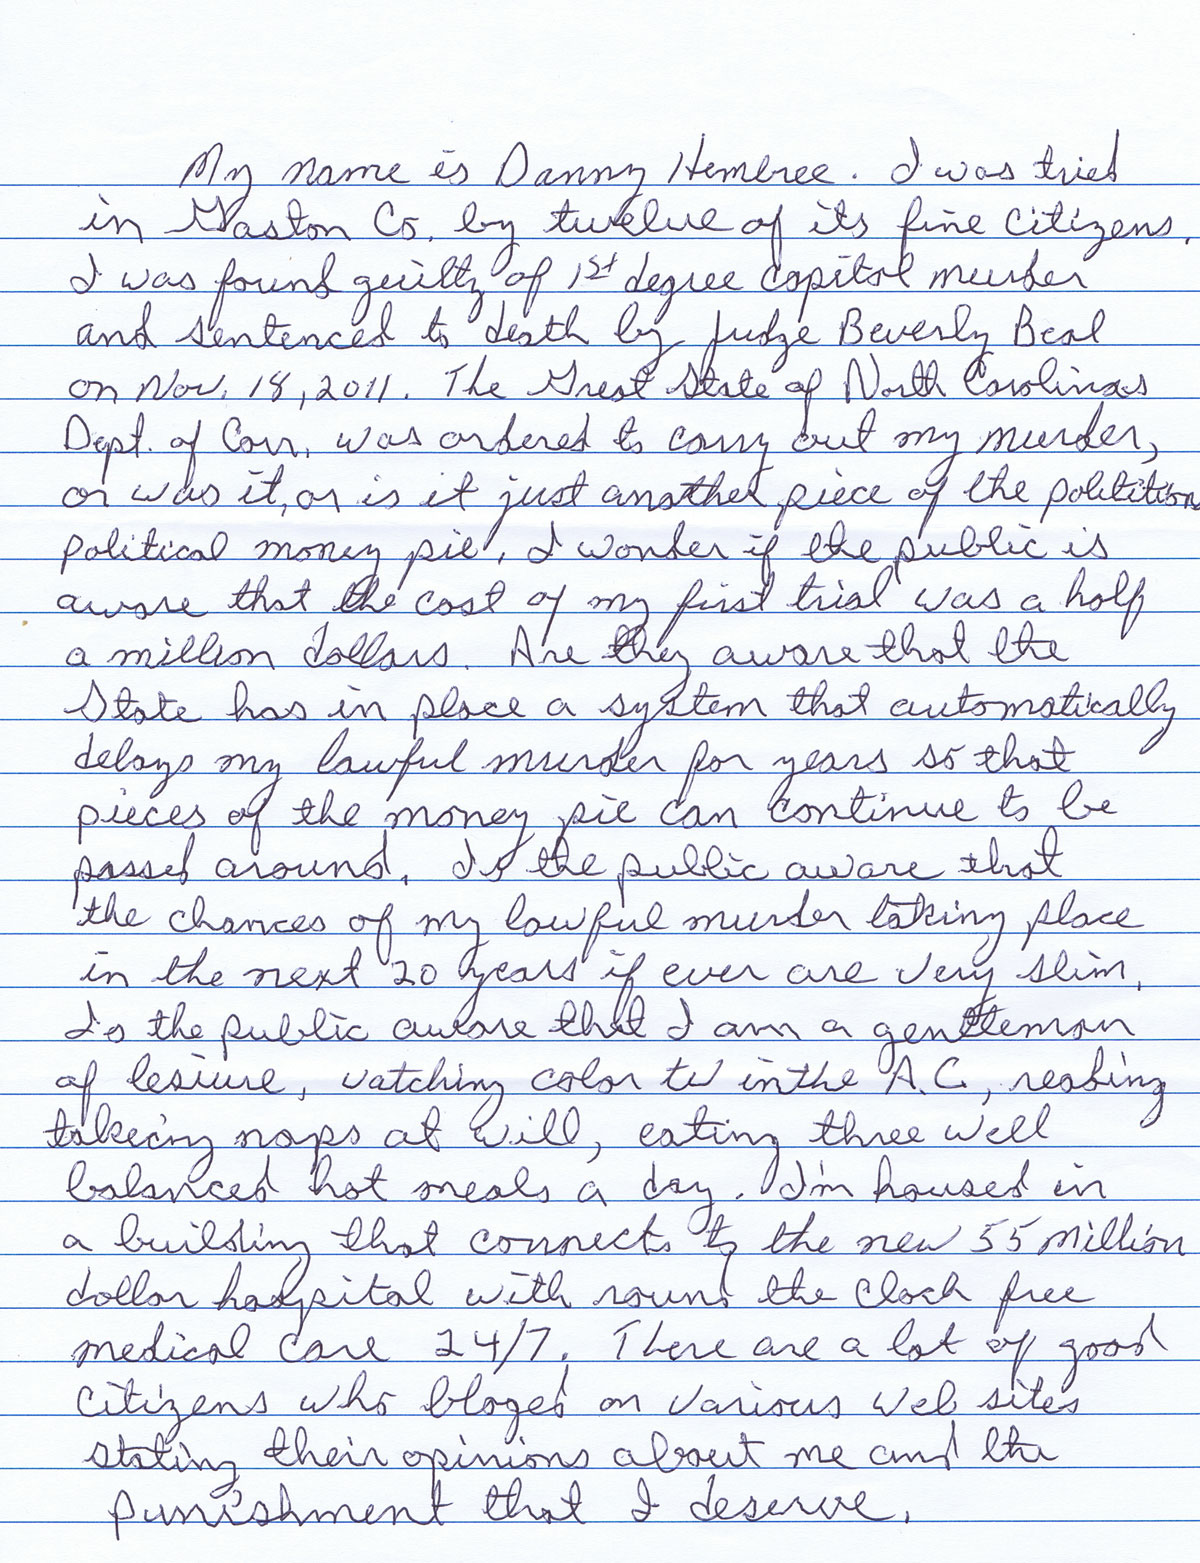 My name is Danny Hembree. I was tried
in Gaston Co. by twelve of its fine citizens.
I was found guilty of 1st degree capitol murder
and sentenced to death by judge Beverly Beal
on Nov. 18, 2011. The Great State of North Carolinas
Dept. of Corr. was ordered to carry out my murder,
or was it, or is it just another piece of the politition
political money pie. I wonder if the public is
aware that the cost of my first trial was a half
a million dollars. Are they aware that the
State has in place a system that automatically
delays my lawful murder for years so that
pieces of the money pie can continue to be
passed around. Is the public aware that
the chances of my lawful murder taking place
in the next 20 years if ever are very slim.
Is the public aware that I am a gentleman
of lesiure, watching color tv in the A.C., reading
takeing naps at will, eating three well
balanced hot meals a day. I'm housed in
a building that connects to the new 55 million
dollar hospital with round the clock free
medical care 24/7. There are a lot of good
citizens who bloged on various web sites
stating their opinions about me and the
punishment that I deserve.